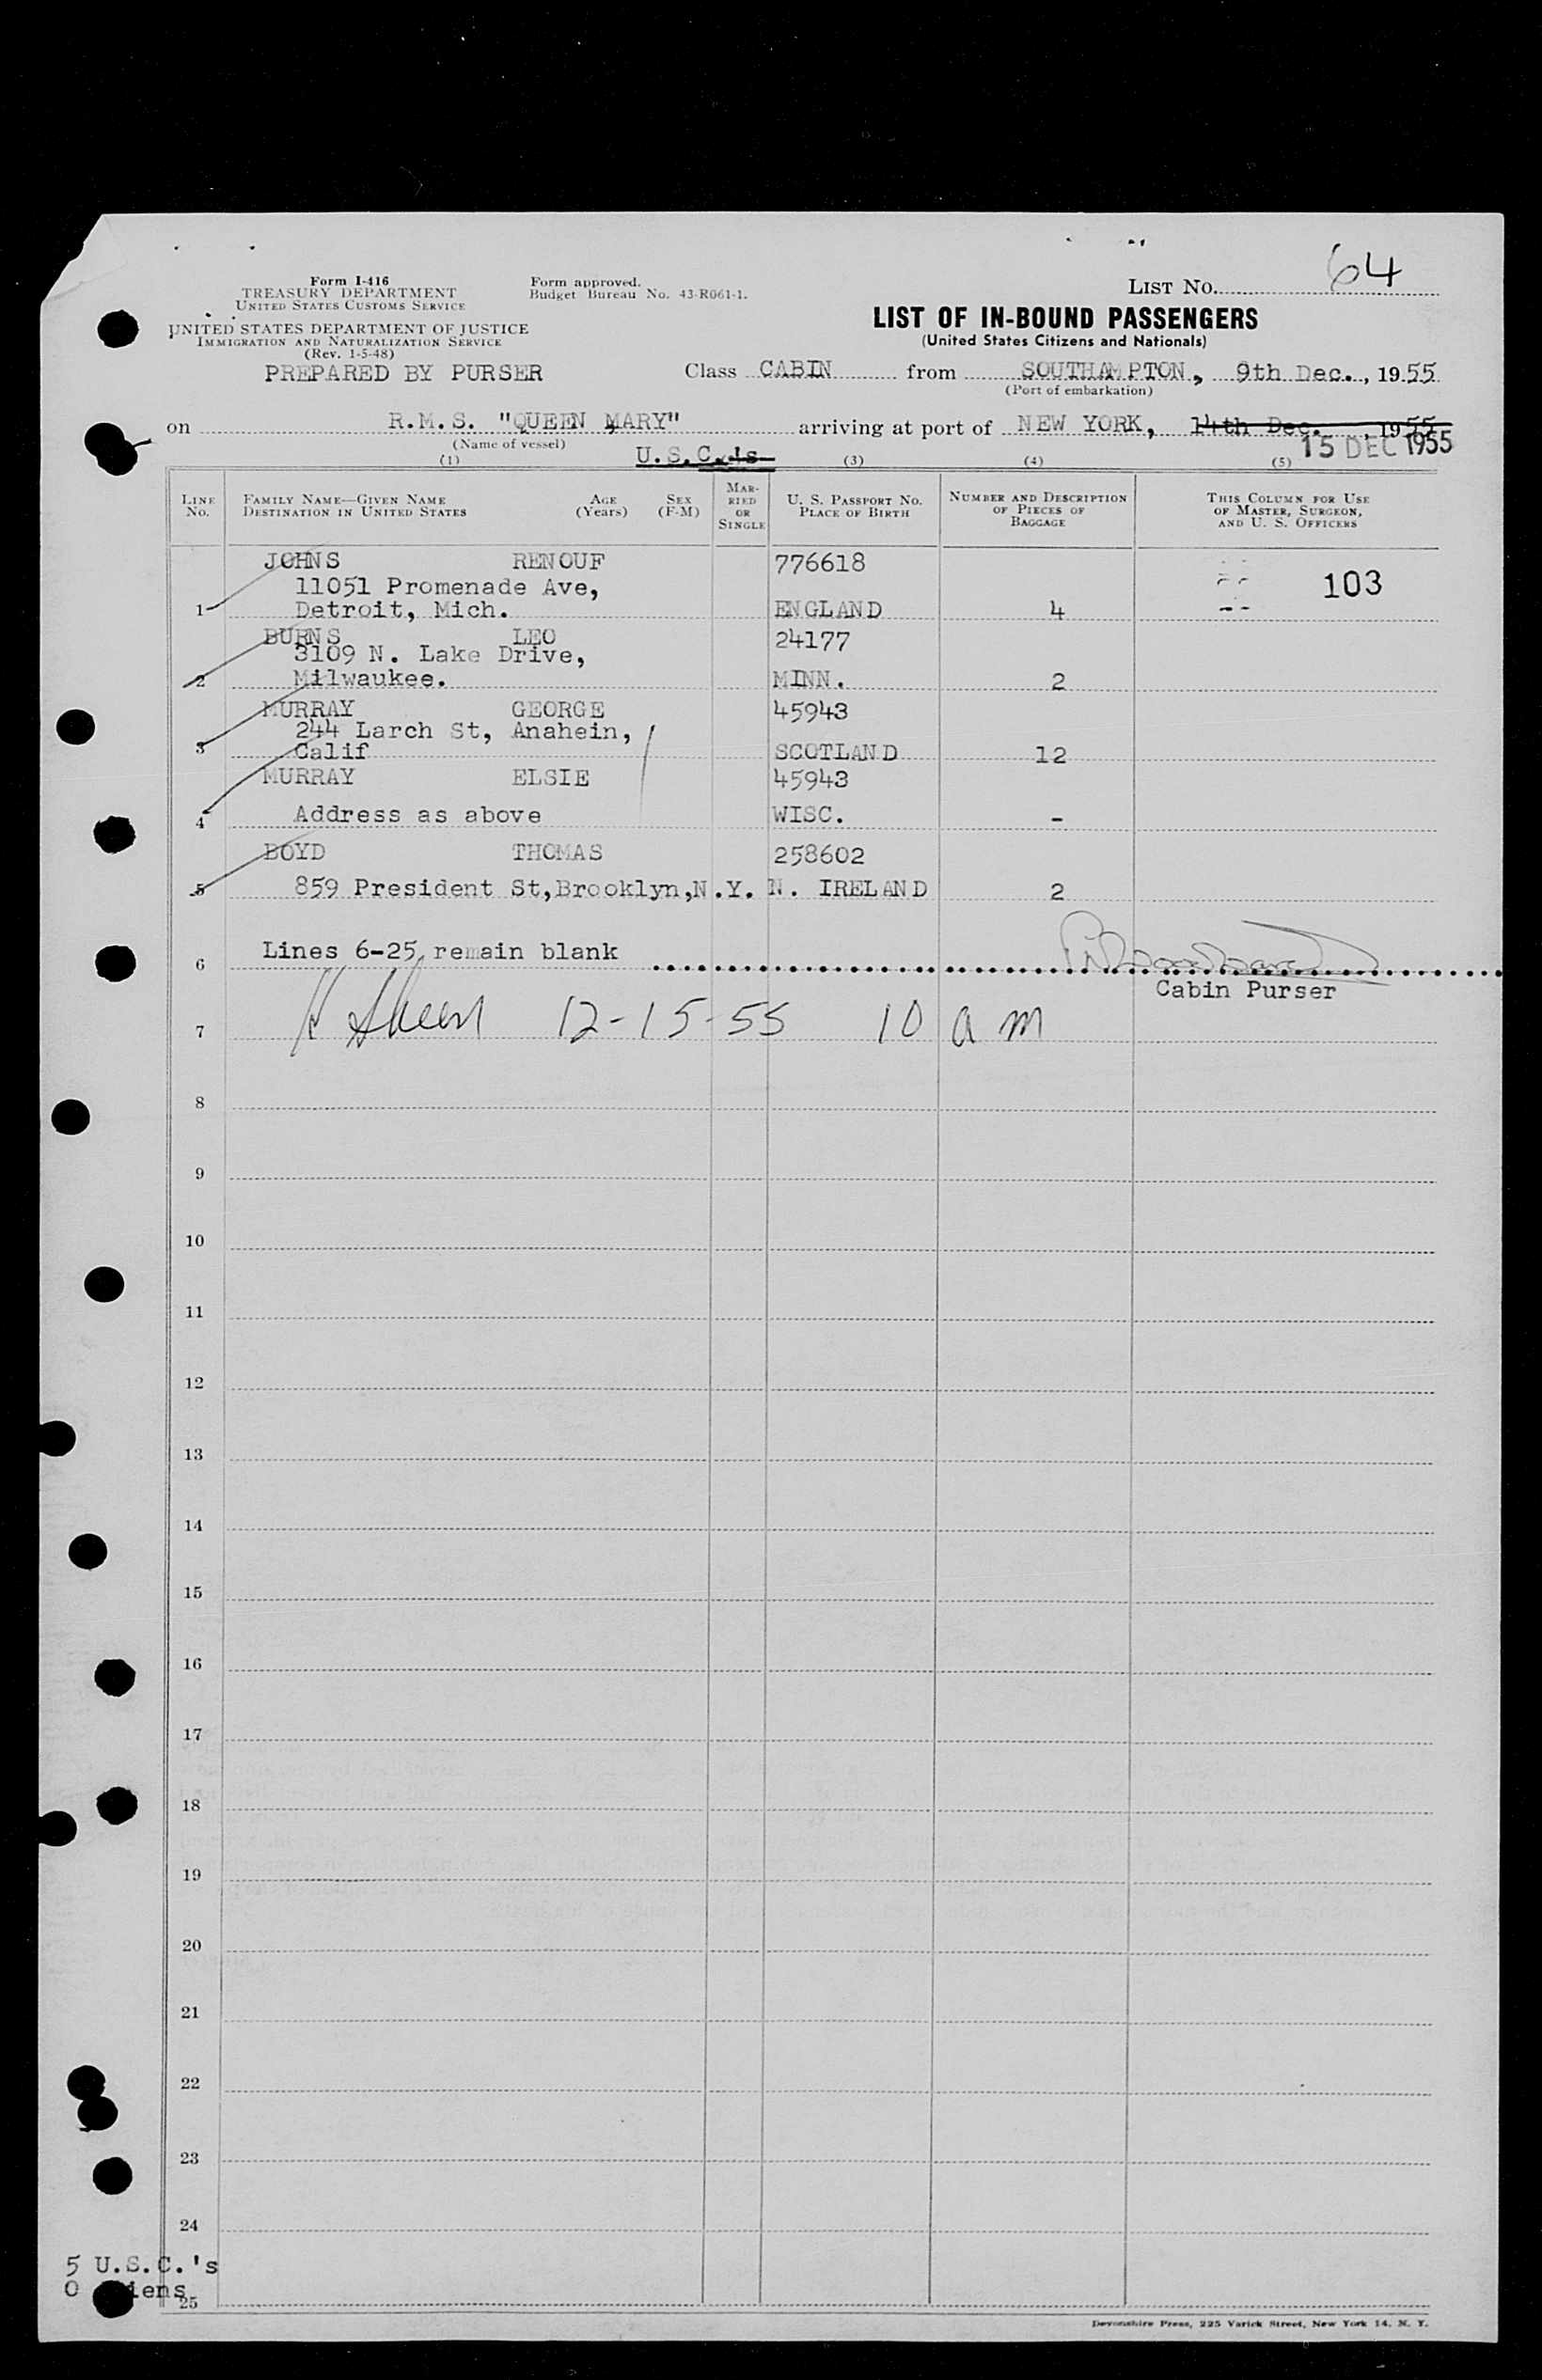 Form I-416
TREASURY DEPARTMENT
UNITED STATES CUSTOMS SERVICE
UNITED STATES DEPARTMENT OF JUSTICE
IMMIGRATION AND NATURALIZATION SERVICE
(Rev. 1-5-48)
PREPARED BY PURSER
Form approved.
Budget Bureau No. 43-R061-1.
LIST NO. 64
LIST OF IN-BOUND PASSENGERS
(United States Citizens and Nationals)
Class CABIN from SOUTHAMPTON, 9th Dec., 1955
(Port of embarkation)
on R.M.S. "QUEEN MARY" arriving at port of NEW YORK, 14th Dec. , 1955
(Name of vessel)
15 DEC 1955
(1) U.S.C.'s (3) (4) (5)
LINE No.
FAMILY NAME—GIVEN NAME
DESTINATION IN UNITED STATES
AGE (Years)
SEX (F-M)
MARRIED OR SINGLE
U. S. PASSPORT NO.
PLACE OF BIRTH
NUMBER AND DESCRIPTION OF PIECES OF BAGGAGE
THIS COLUMN FOR USE OF MASTER, SURGEON, AND U. S. OFFICERS
JOHNS RENOUF 776618
11051 Promenade Ave, 103
1 Detroit, Mich. ENGLAND 4
BURNS LEO 24177
3109 N. Lake Drive,
2 Milwaukee. MINN. 2
MURRAY GEORGE 45943
244 Larch St, Anahein,
3 Calif SCOTLAND 12
MURRAY ELSIE 45943
4 Address as above WISC. -
BOYD THOMAS 258602
5 859 President St,Brooklyn,N.Y. N. IRELAND 2
6 Lines 6-25 remain blank
Cabin Purser
7 12-15-55 10 am
8
9
10
11
12
13
14
15
16
17
18
19
20
21
22
23
24
5 U.S.C.'s
0 iens
25
Devonshire Press, 225 Varick Street, New York 14, N. Y.